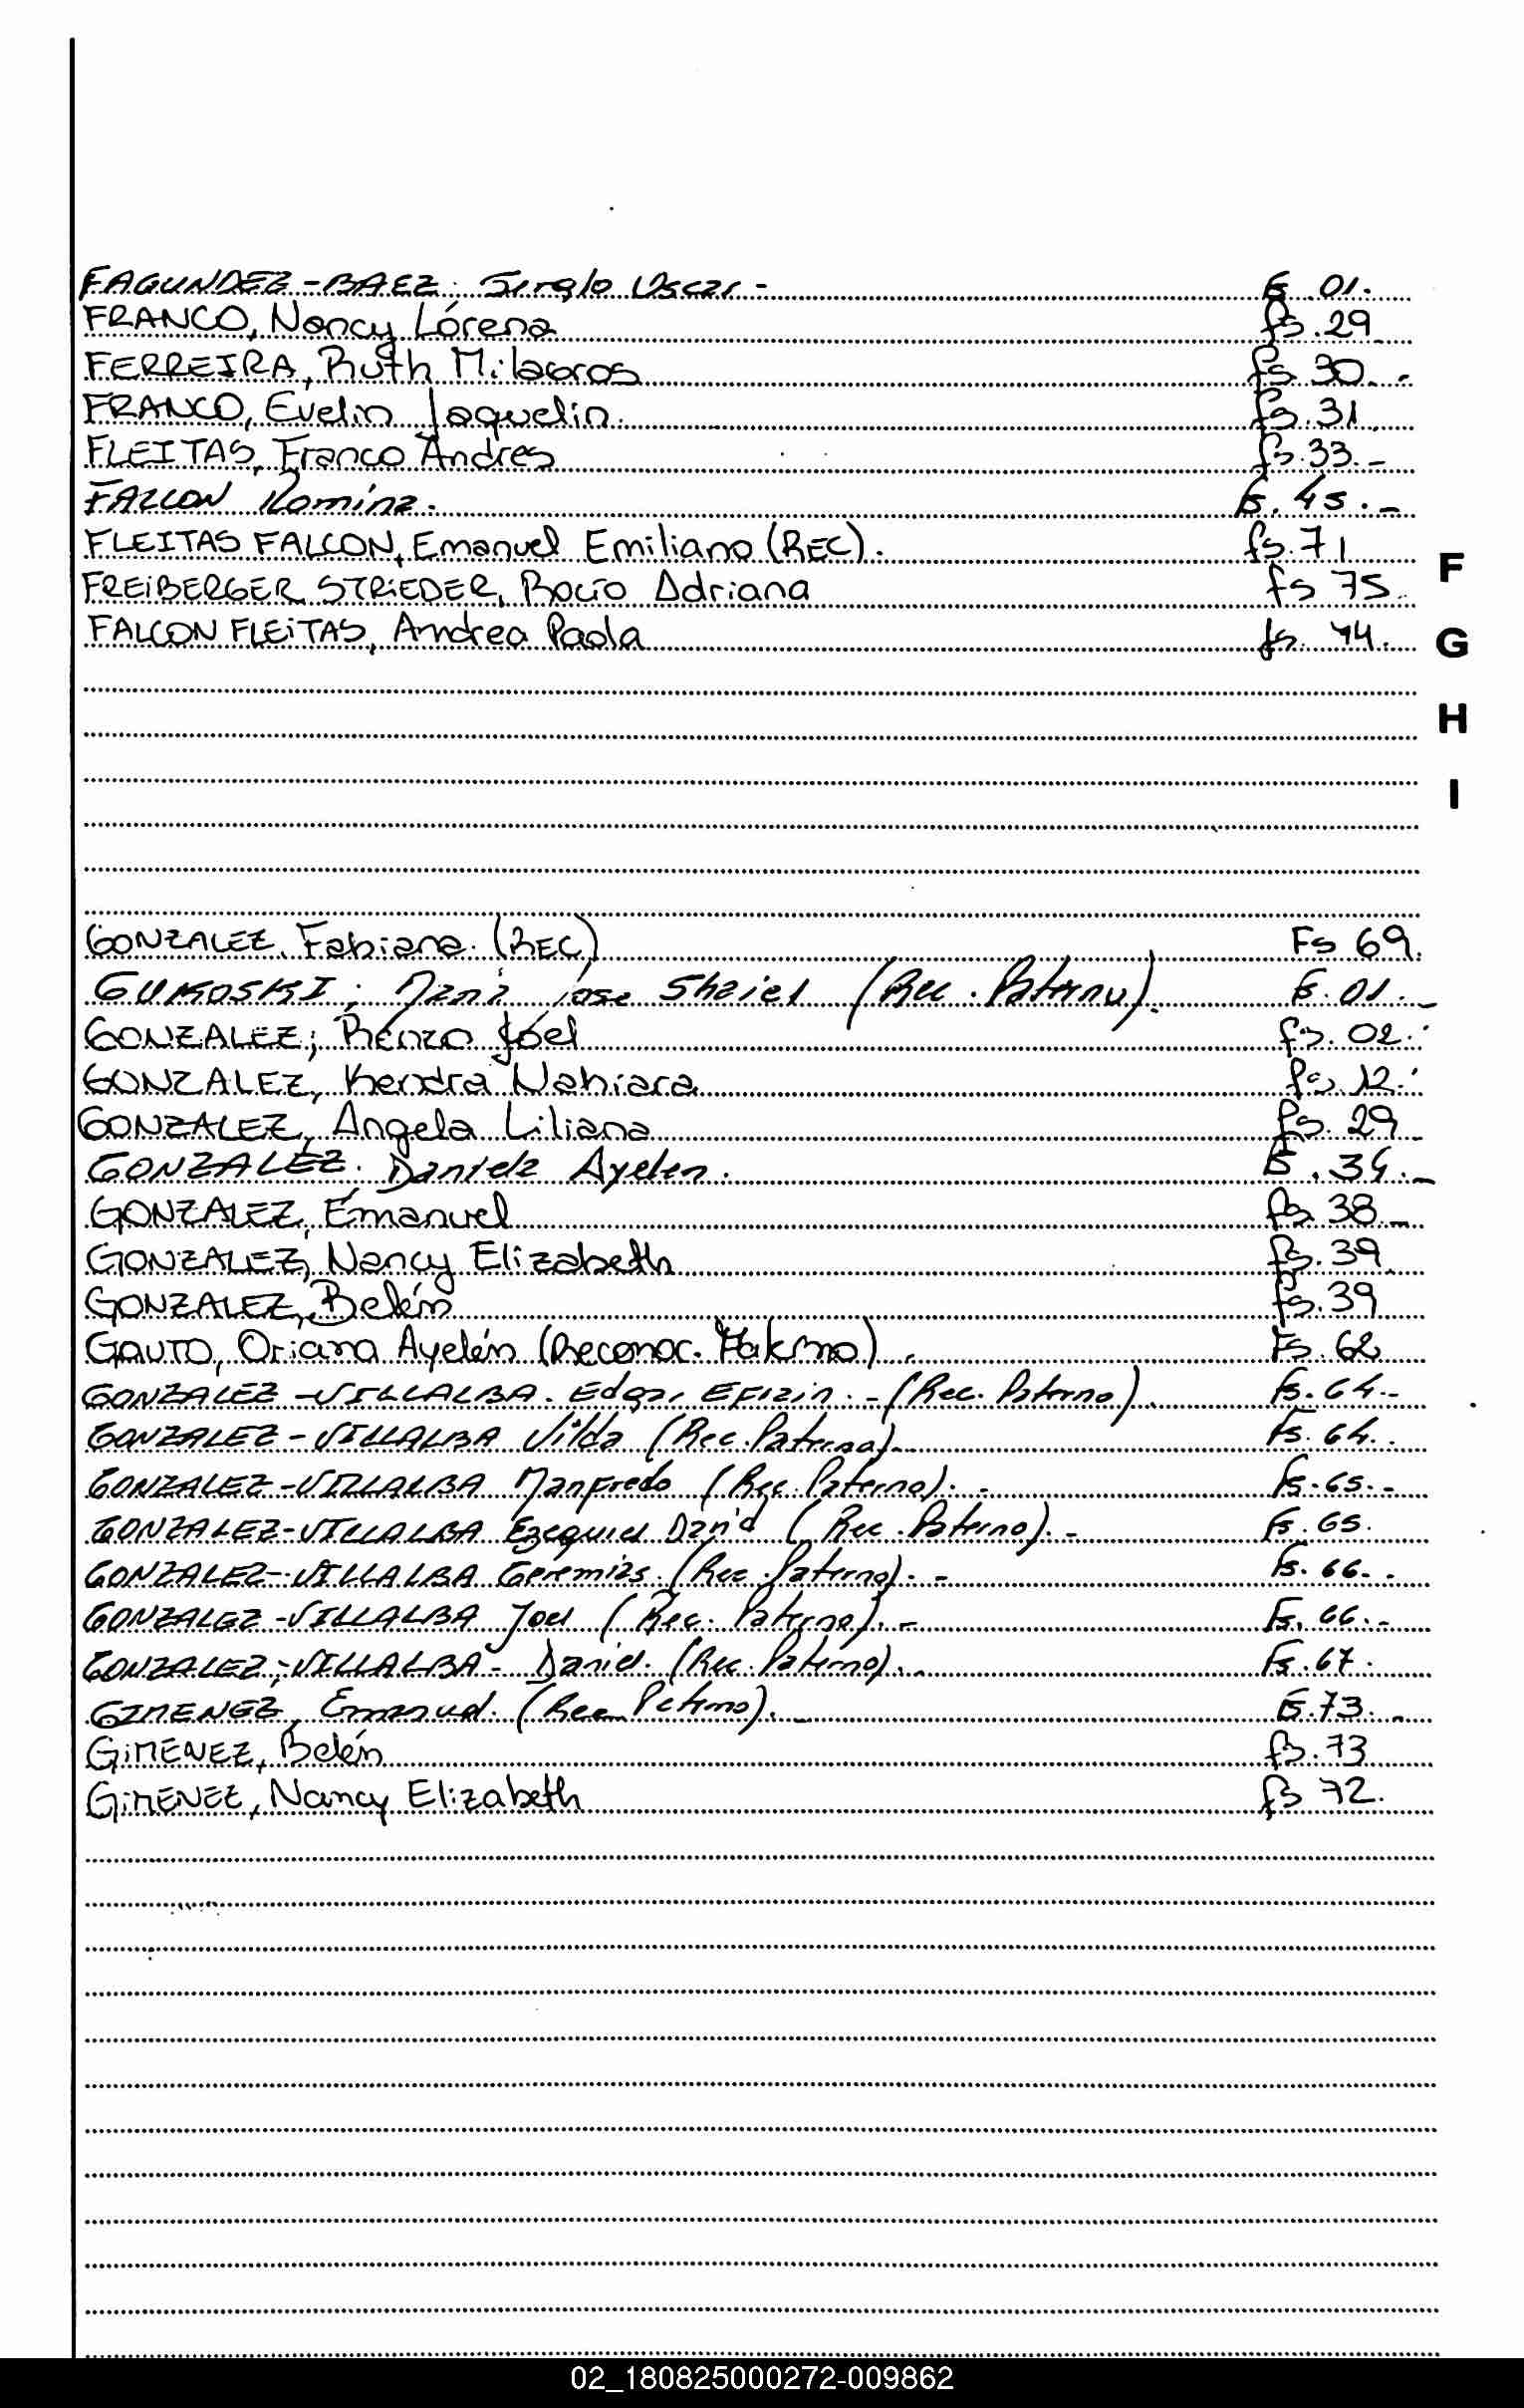 FAGUNDEZ-BAEZ. Sergio Oscar - fs 01.
FRANCO, Nancy Lorena fs. 29
FERREIRA, Ruth Milagros fs 30.-
FRANCO, Evelin Jaquelin. fs. 31
FLEITAS, Franco Andres fs. 33.-
FALCON Romina. fs. 45.-
FLEITAS FALCON, Emanuel Emiliano (REC). fs. 71
FREIBERGER STRIEDER, Rocío Adriana fs 75.
FALCON FLEITAS, Andrea Paola fs. 44.
F
G
H
I
GONZALEZ, Fabiana. (REC) Fs 69.
GUKOSKI; José (Rec. Paterno). fs. 01.-
GONZALEZ; Renzo Joel fs. 02.
GONZALEZ, Kendra Nahiara fs. 12.
GONZALEZ, Angela Liliana fs. 29
GONZALEZ. Daniela Ayelen. fs. 34.-
GONZALEZ, Emanuel fs 38.-
GONZALEZ, Nancy Elizabeth fs. 39
GONZALEZ, Belén fs. 39
GAUTO, Oriana Ayelén (Reconoc. Paterno). Fs. 62
GONZALEZ-VILLALBA. Edgar Efrain. - (Rec. Paterno). fs. 64.-
GONZALEZ-VILLALBA Vilda (Rec. Paterno). fs. 64.
GONZALEZ-VILLALBA Manfredo (Rec. Paterno). - fs. 65.-
GONZALEZ-VILLALBA Ezequiel David (Rec. Paterno). - fs. 65.
GONZALEZ-VILLALBA Geremias. (Rec. Paterno). - fs. 66.
GONZALEZ-VILLALBA Joel (Rec. Paterno). - fs. 66.-
GONZALEZ-VILLALBA - Daniel. (Rec. Paterno). fs. 67.
GIMENEZ, Emanuel. (Rec Paterno). - fs. 73.-
GIMENEZ, Belén fs. 73
GIMENEZ, Nancy Elizabeth fs 72.
02_180825000272-009862